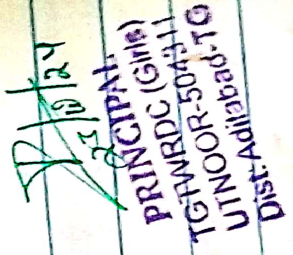 PRINCIPAL
TGTWRDC (Girls)
UTNOOR-504311
Dist:Adilabad.TG